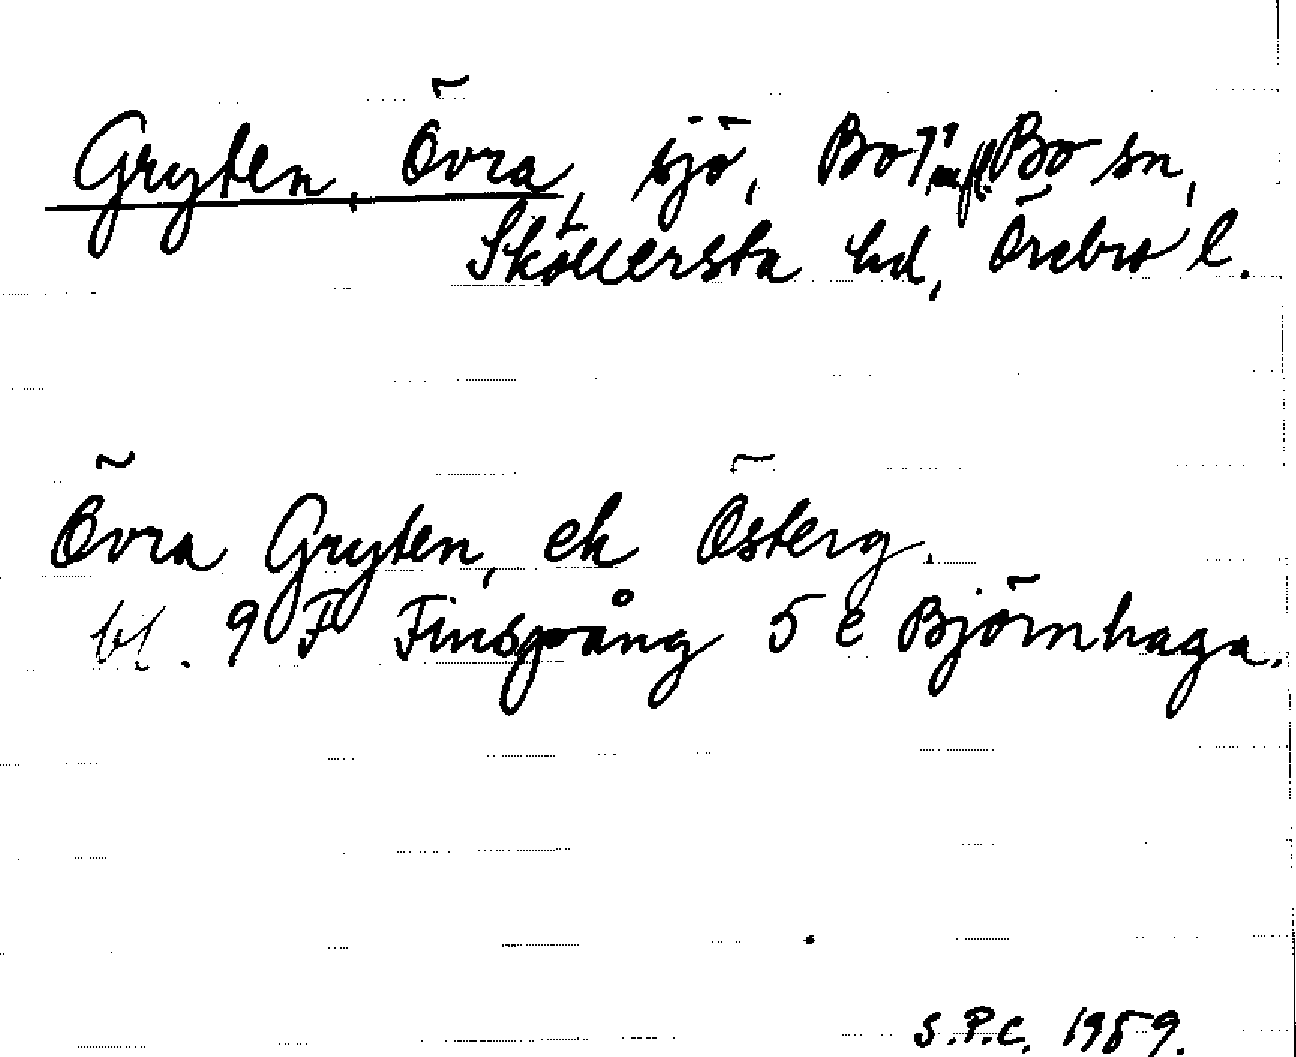 Gryten, Övra, sjö, Bo Bo sn,
Sköllersta hd, Örebro l.
Övra Gryten, ek Österg.
bl. 9 F Finspång 5 e Björnhaga.
S.P.C. 1989.